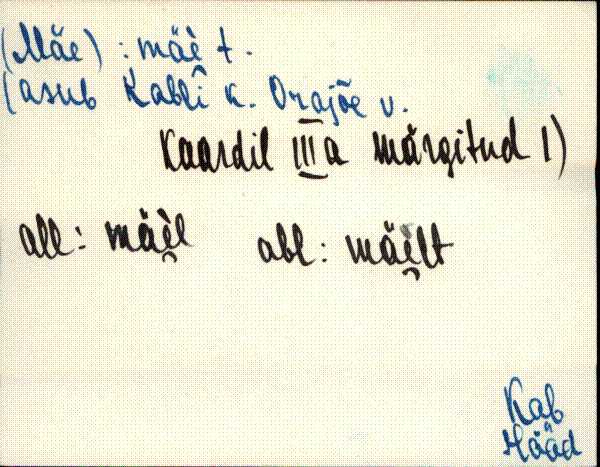 (Mäe) : mäè t.
(asub Kablî k. Orajõe v.
Kaardil IIIa märgitud 1)
all: mäè̯l abl: mäè̯lt
Kab
Hääd